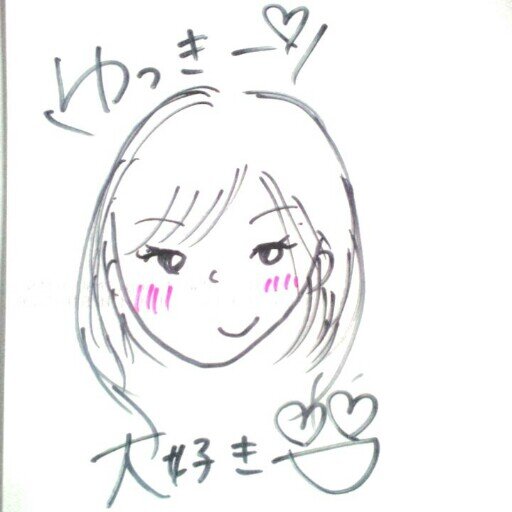 ゆっきー♡
大好き